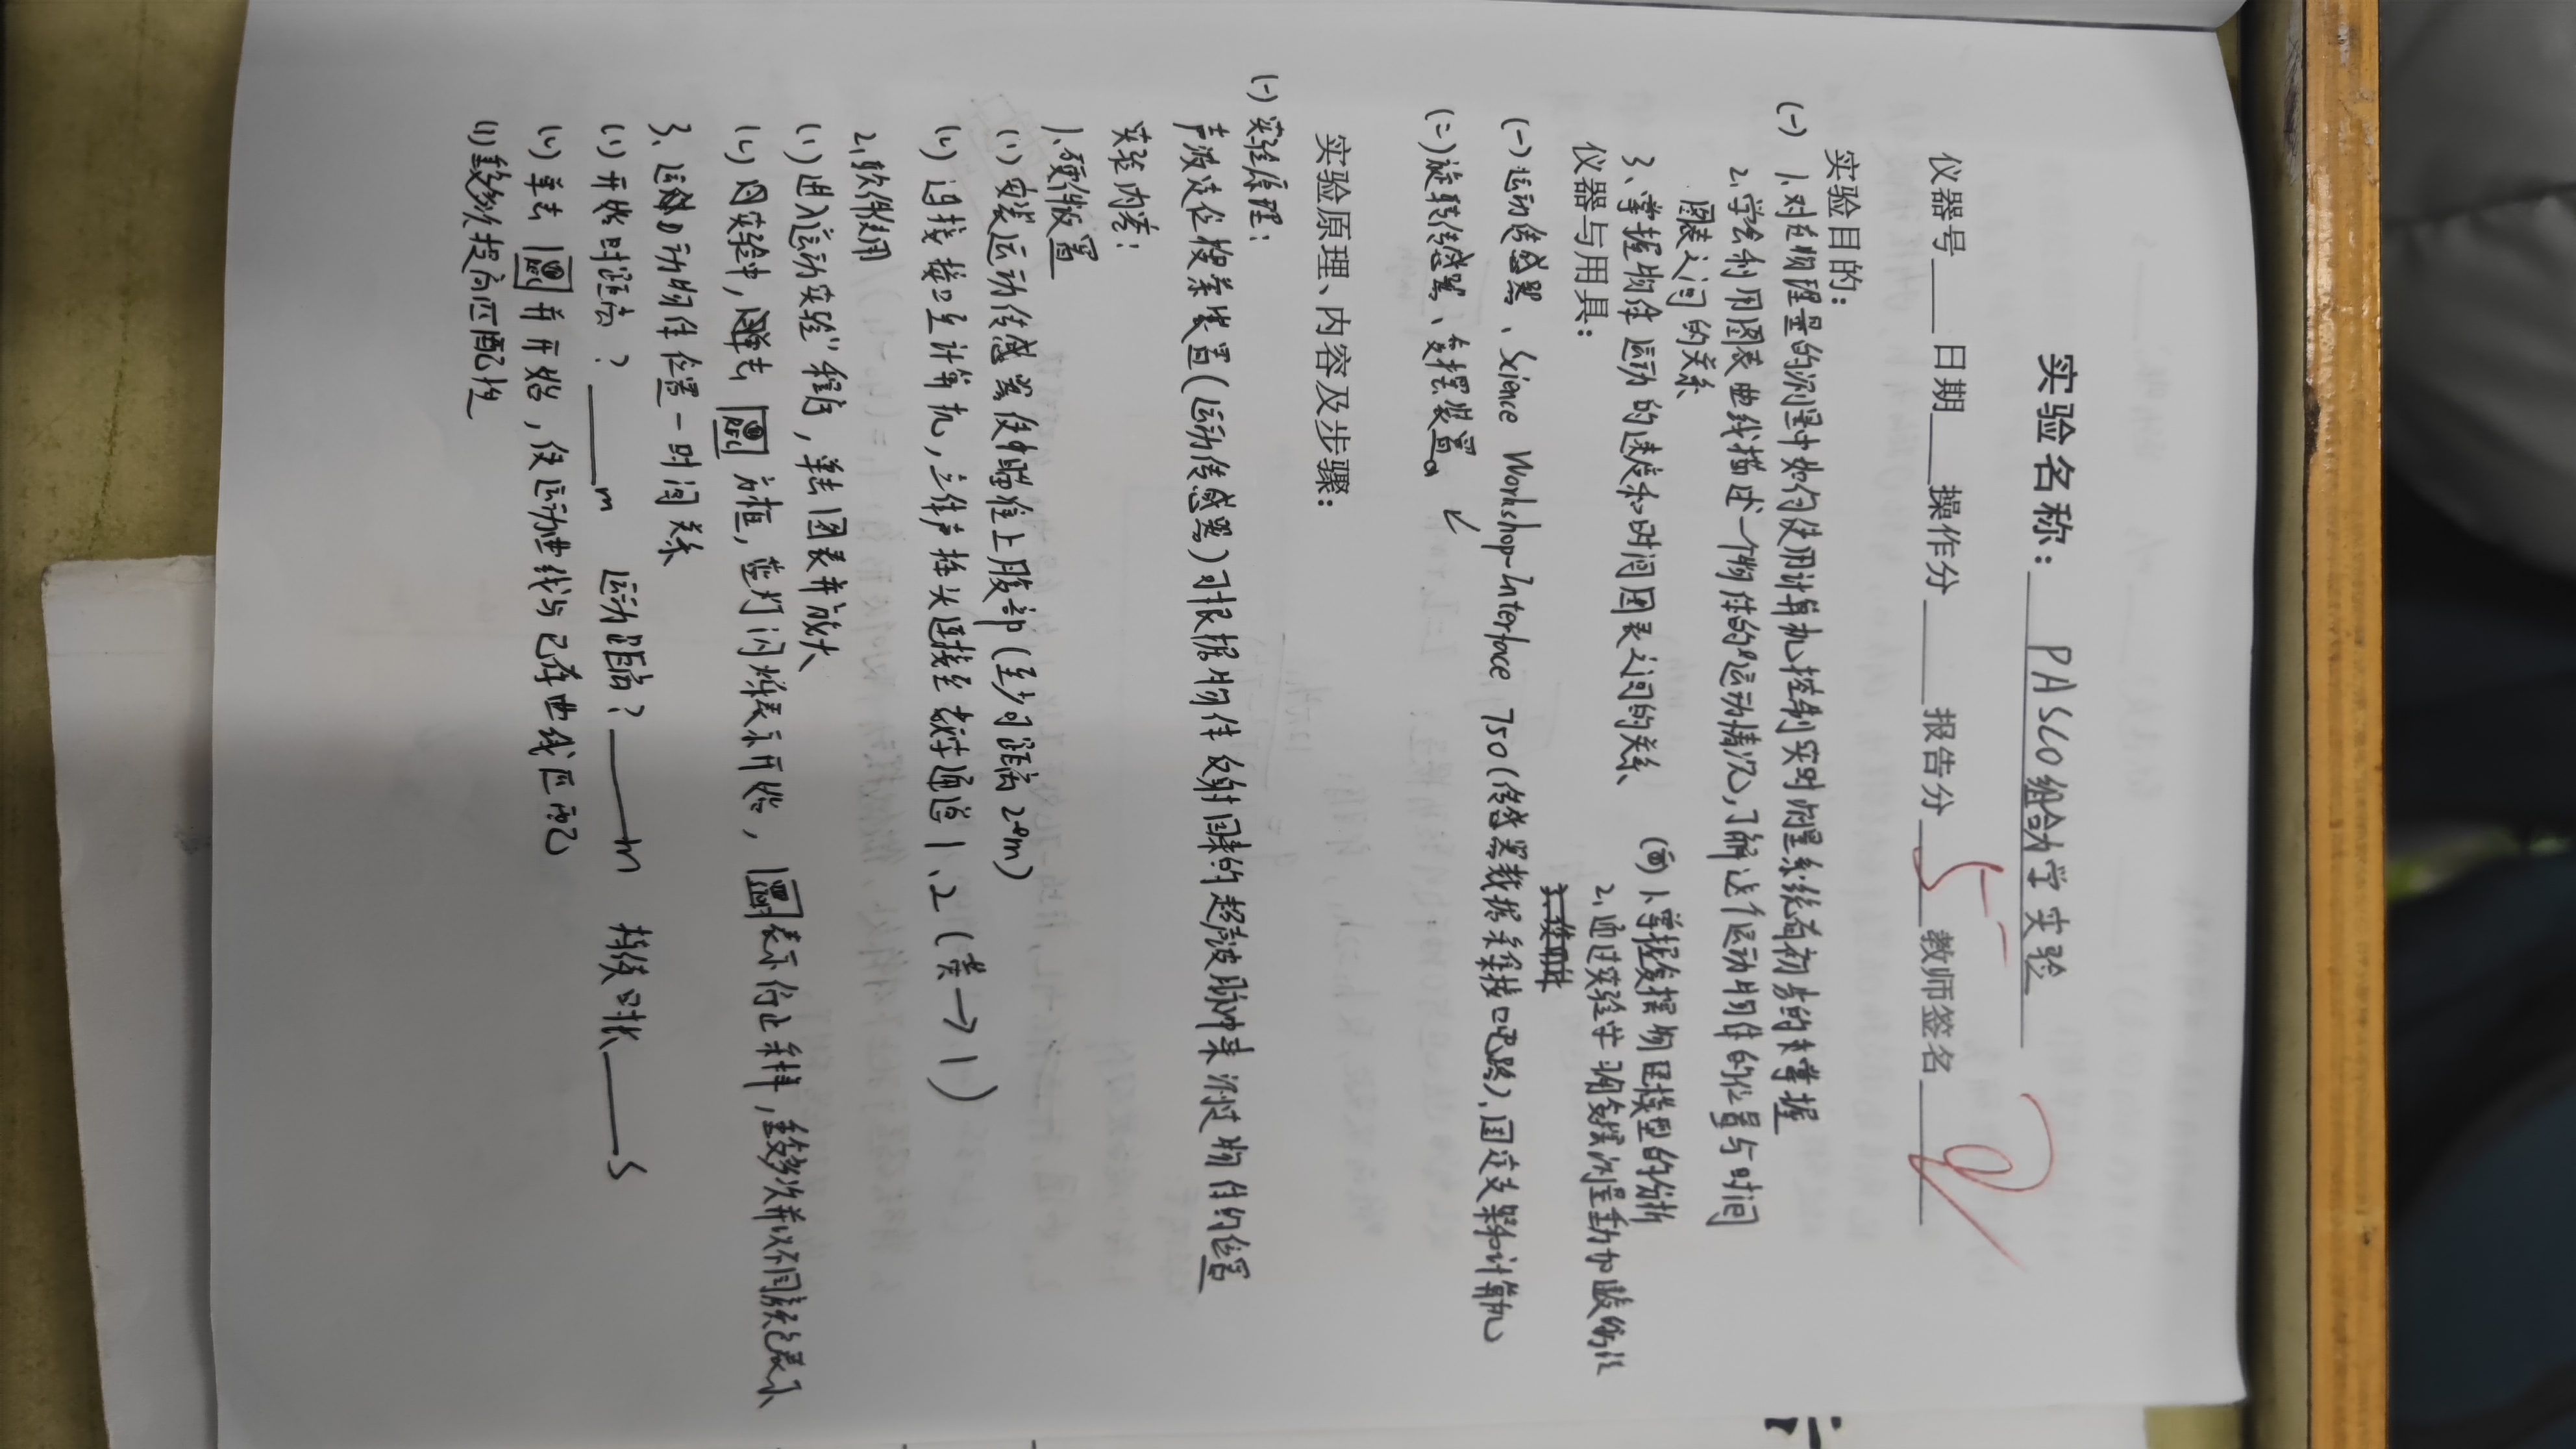 实验名称： PASCO组合力学实验
仪器号 日期 操作分 报告分 5- 教师签名
实验目的：
(一) 1.对在物理量的测量中如何使用计算机控制实时测量系统有初步的掌握
2.学会利用图表曲线描述一个物体的运动情况,了解这个运动物体的位置与时间
图表之间的关系
3、掌握物体运动的速度和时间图表之间的关系 (二) 1.掌握复摆物理模型的分析
2.通过实验学习用复摆测量重力加速度
仪器与用具：
(一)运动传感器、Science Workshop-Interface 750(传感器数据采集接口电路)、固定支架和计算机
(二)旋转传感器、复摆装置。 ✓
实验原理、内容及步骤：
(一)实验原理：
声波定位搜索装置(运动传感器)可根据物体反射回来的超声波脉冲来测定物体的位置
实验内容：
1.硬件设置
(1)安装运动传感器使瞄准上腹部(至少可距离2m)
(2)连接接口至计算机,立体声插头连接至数字通道1、2(黄→1)
2.软件使用
(1)进入"运动实验"程序,单击图表并放大
(2)内实验中,单击 REC 方框,蓝灯闪烁表示开始, 表示停止采样,重复多次并以不同颜色表示
3、运动物体位置—时间关系
(1)开始时距离? m 运动距离? m 持续时长 s
(2)单击 REC 并开始,使运动曲线与已存曲线匹配
(3)重复多次提高匹配性